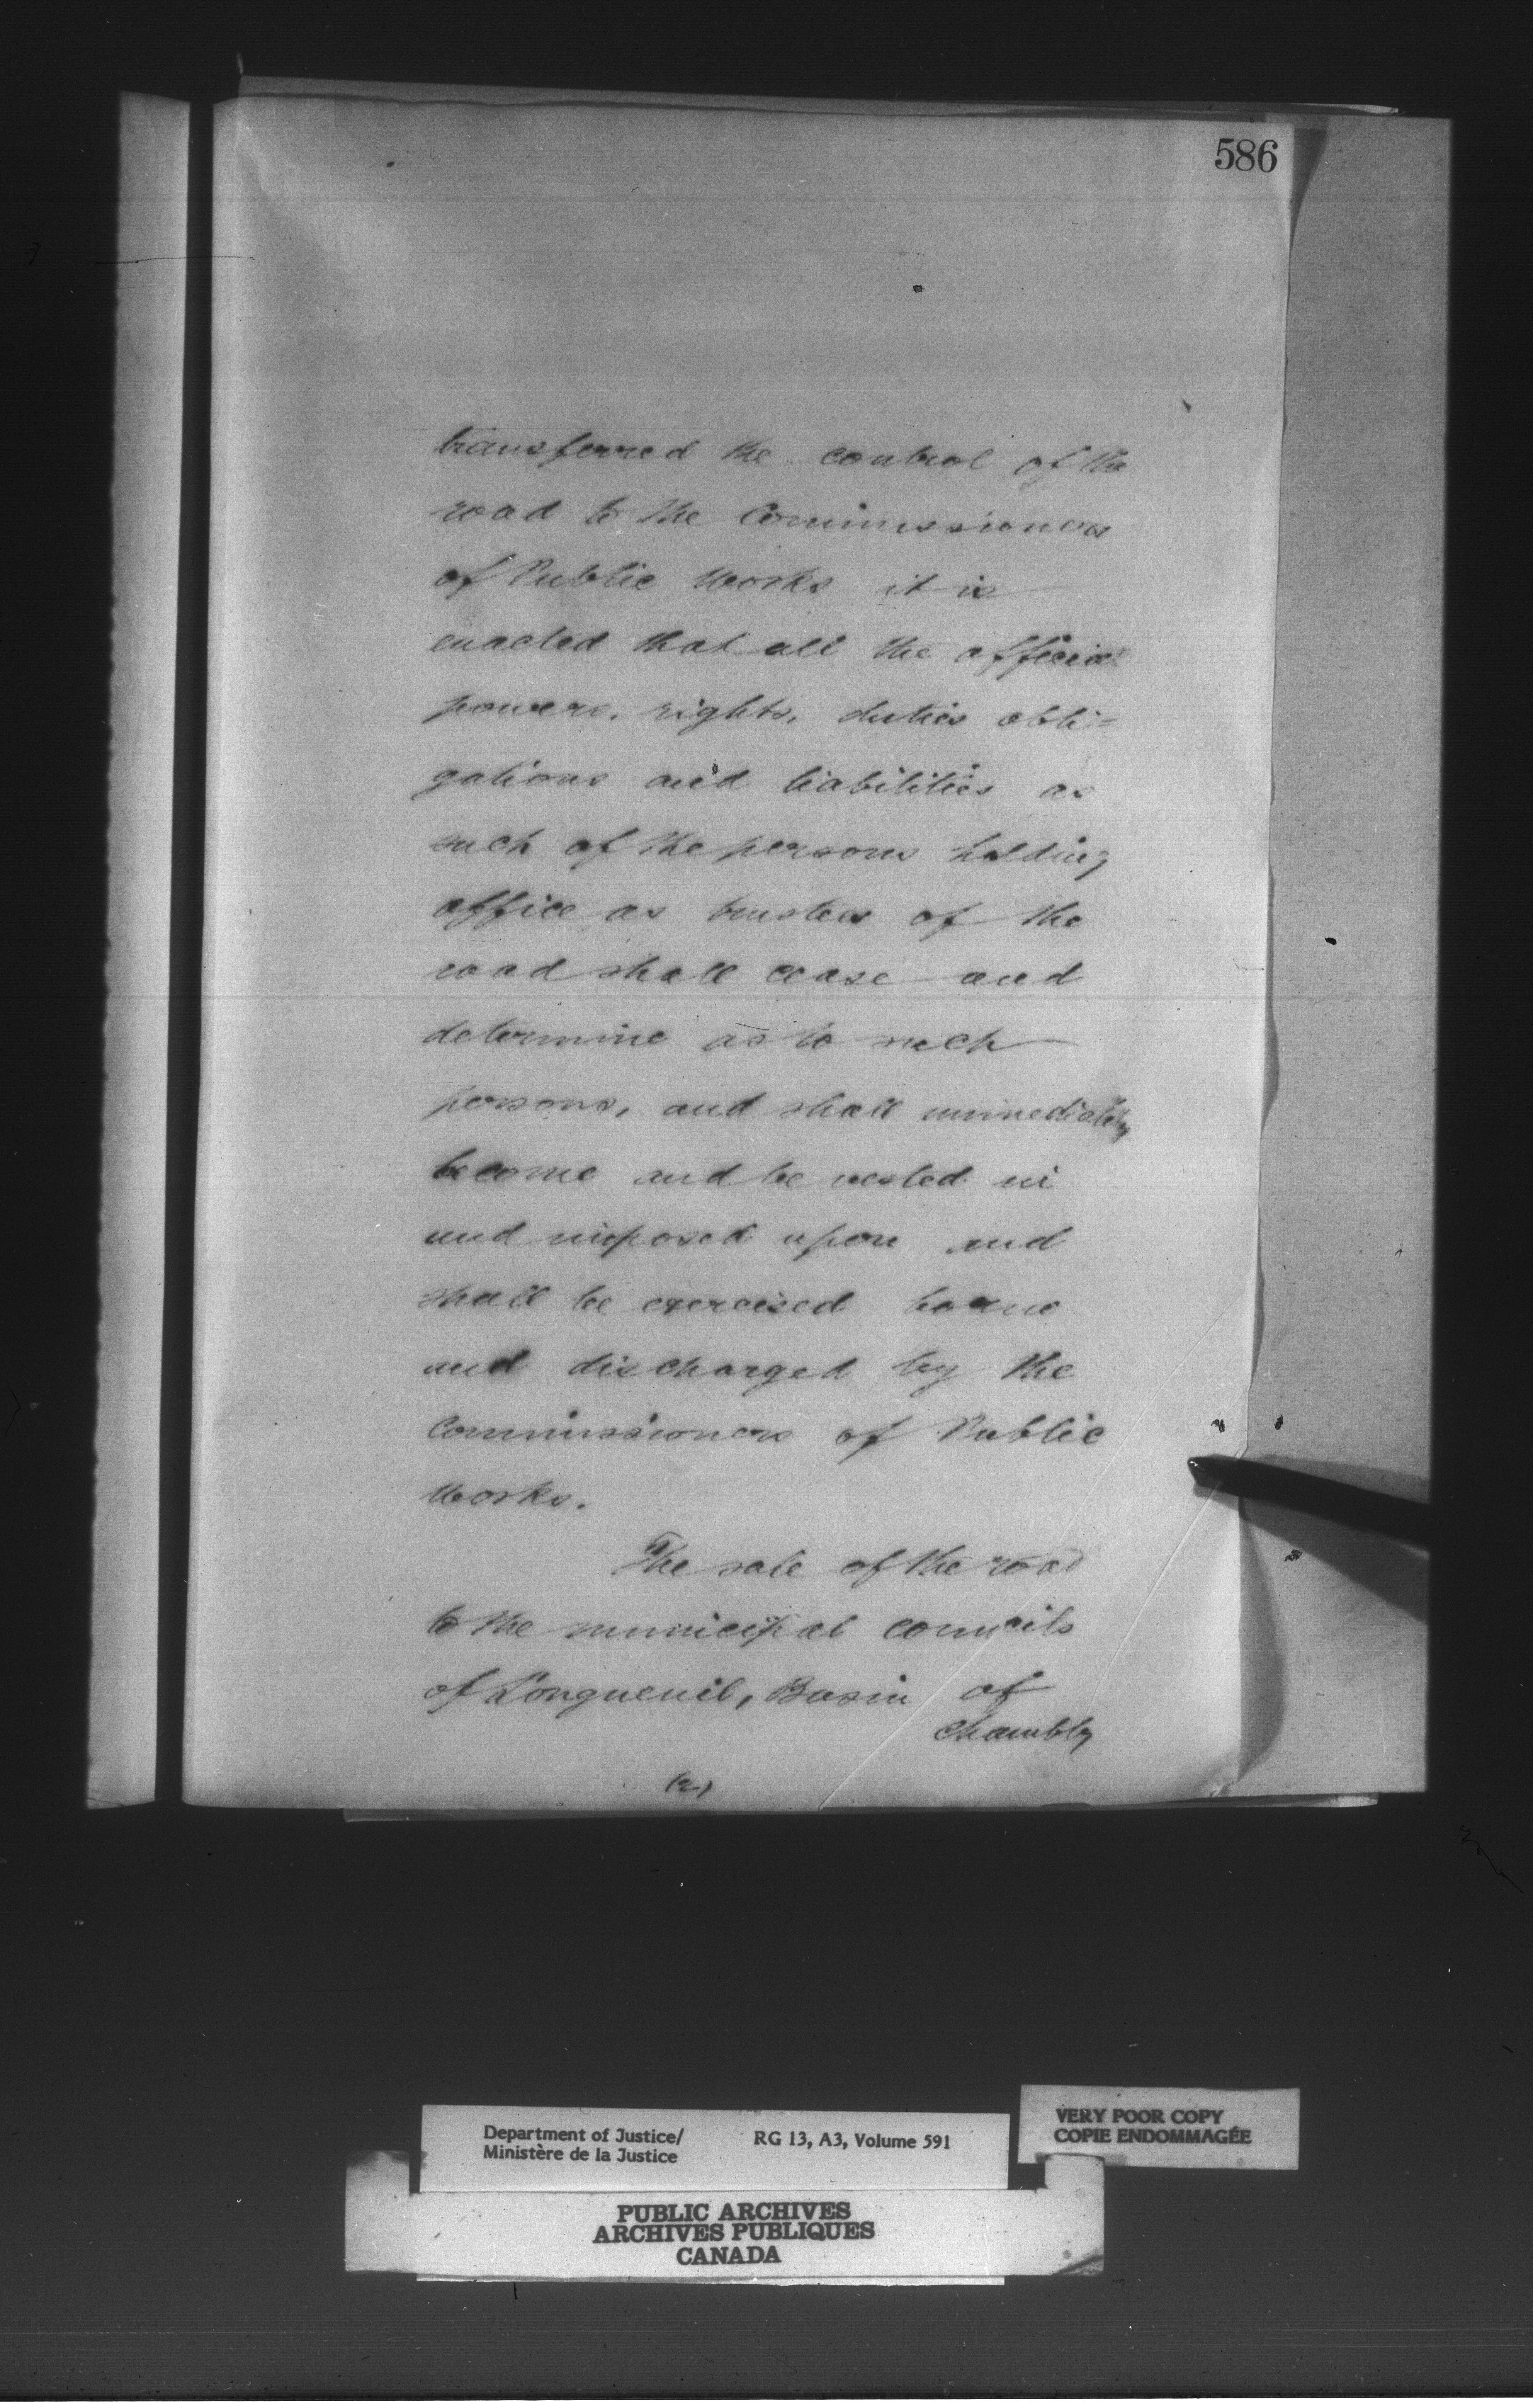 586
transferred the control of the
road to the Commissioners
of Public Works it is
enacted that all the official
powers, rights, duties obli=
gations and liabilities as
such of the persons holding
office as trustees of the
road shall cease and
determine as to such
persons, and shall immediately
become and be vested in
and imposed upon and
shall be exercised borne
and discharged by the
Commissioners of Public
Works.
The sale of the road
to the municipal councils
of Longueuil, Basin of
Chambly
(2)
Department of Justice/
Ministère de la Justice
RG 13, A3, Volume 591
VERY POOR COPY
COPIE ENDOMMAGÉE
PUBLIC ARCHIVES
ARCHIVES PUBLIQUES
CANADA